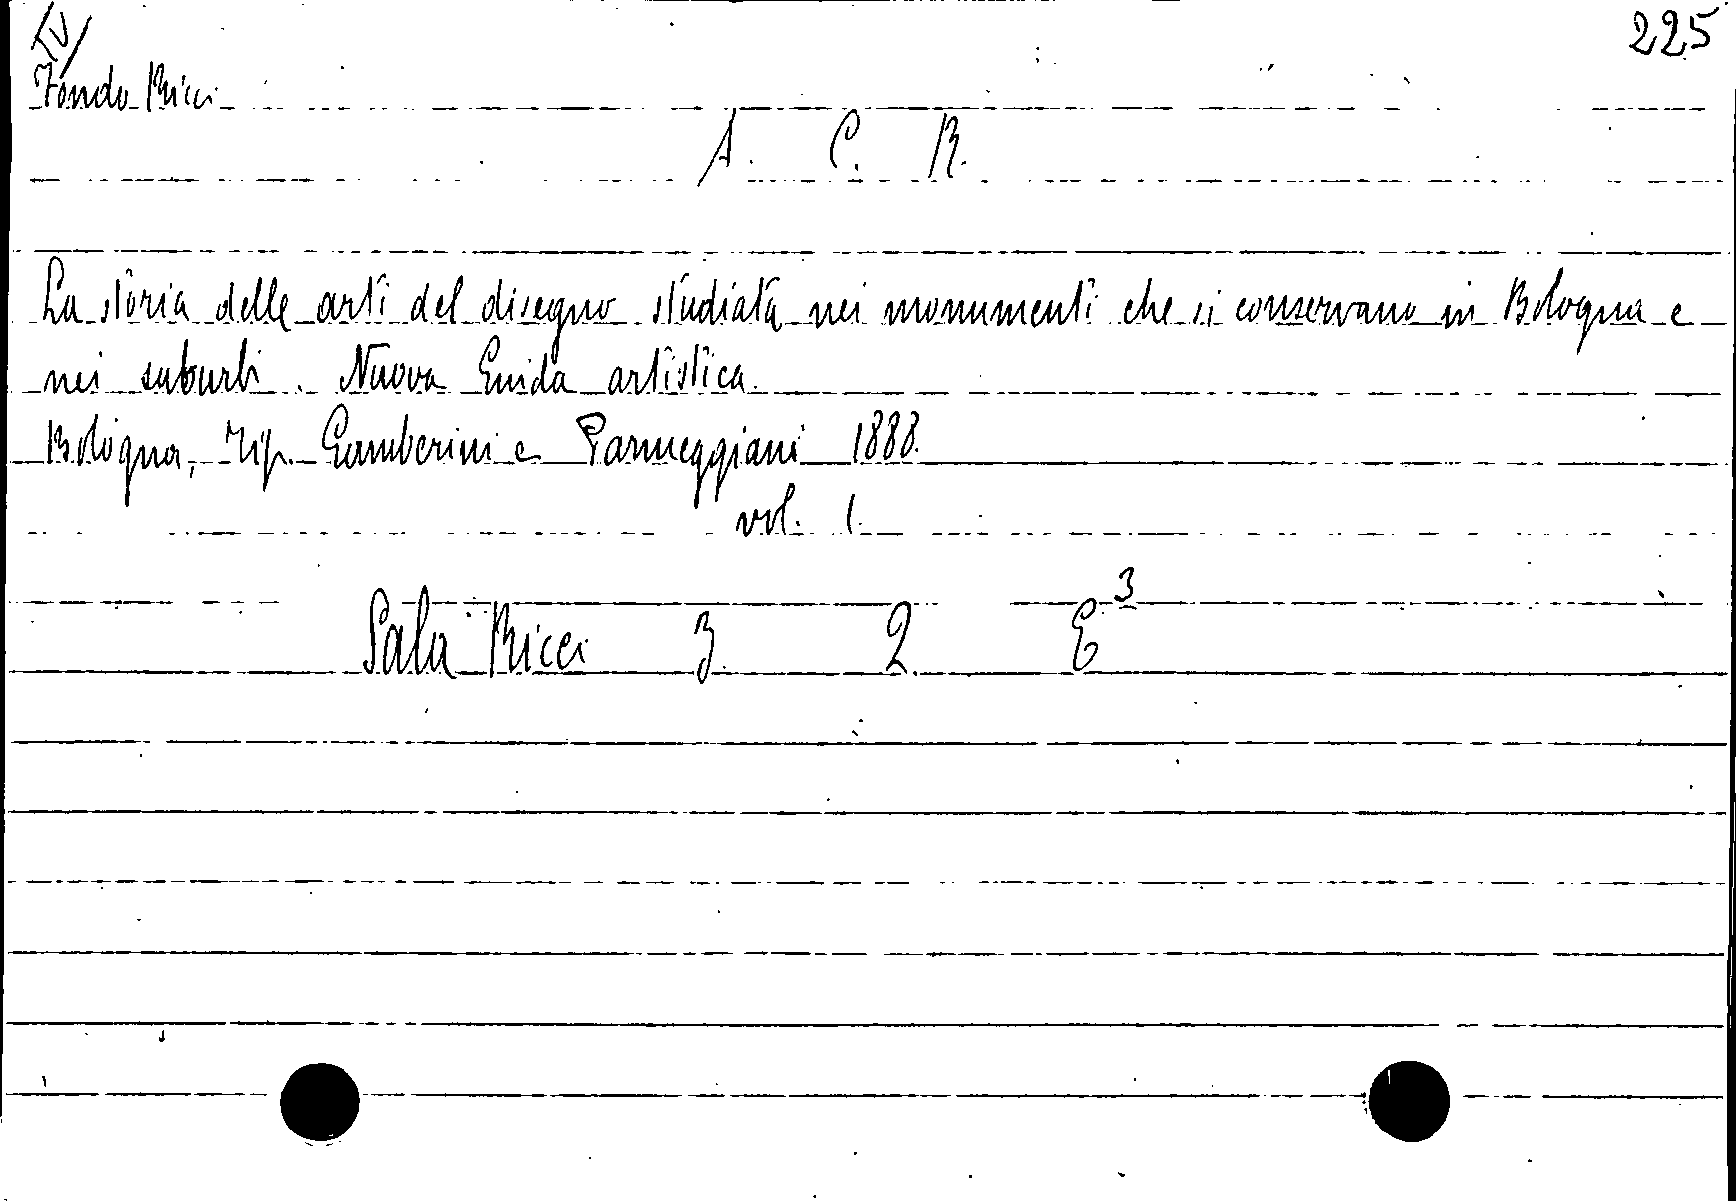 IV/
225
Fondo Ricci
A. C. R.
La storia delle arti del disegno studiata nei monumenti che si conservano in Bologna e
nei suburbi. Nuova Guida artistica.
Bologna, Tip. Gamberini e Parmeggiani 1888.
vol. 1.
Sala Ricci 3. 2. E 3